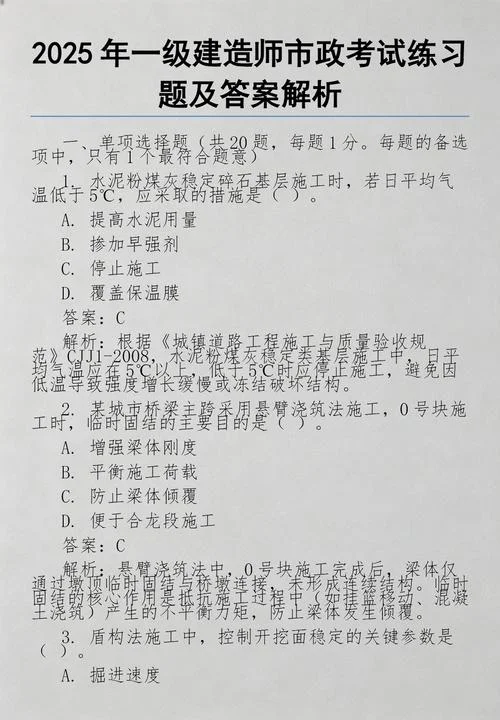 2025 年一级建造师市政考试练习
题及答案解析
一、单项选择题（共 20 题，每题 1 分。每题的备选
项中，只有 1 个最符合题意）
1. 水泥粉煤灰稳定碎石基层施工时，若日平均气
温低于 5℃，应采取的措施是（ ）。
A. 提高水泥用量
B. 掺加早强剂
C. 停止施工
D. 覆盖保温膜
答案：C
解析：根据《城镇道路工程施工与质量验收规
范》CJJ1-2008，水泥粉煤灰稳定类基层施工中，日平
均气温应在 5℃以上，低于 5℃时应停止施工，避免因
低温导致强度增长缓慢或冻结破坏结构。
2. 某城市桥梁主跨采用悬臂浇筑法施工，0 号块施
工时，临时固结的主要目的是（ ）。
A. 增强梁体刚度
B. 平衡施工荷载
C. 防止梁体倾覆
D. 便于合龙段施工
答案：C
解析：悬臂浇筑法中，0 号块施工完成后，梁体仅
通过墩顶临时固结与桥墩连接，未形成连续结构。临时
固结的核心作用是抵抗施工过程中（如挂篮移动、混凝
土浇筑）产生的不平衡力矩，防止梁体发生倾覆。
3. 盾构法施工中，控制开挖面稳定的关键参数是
（ ）。
A. 掘进速度